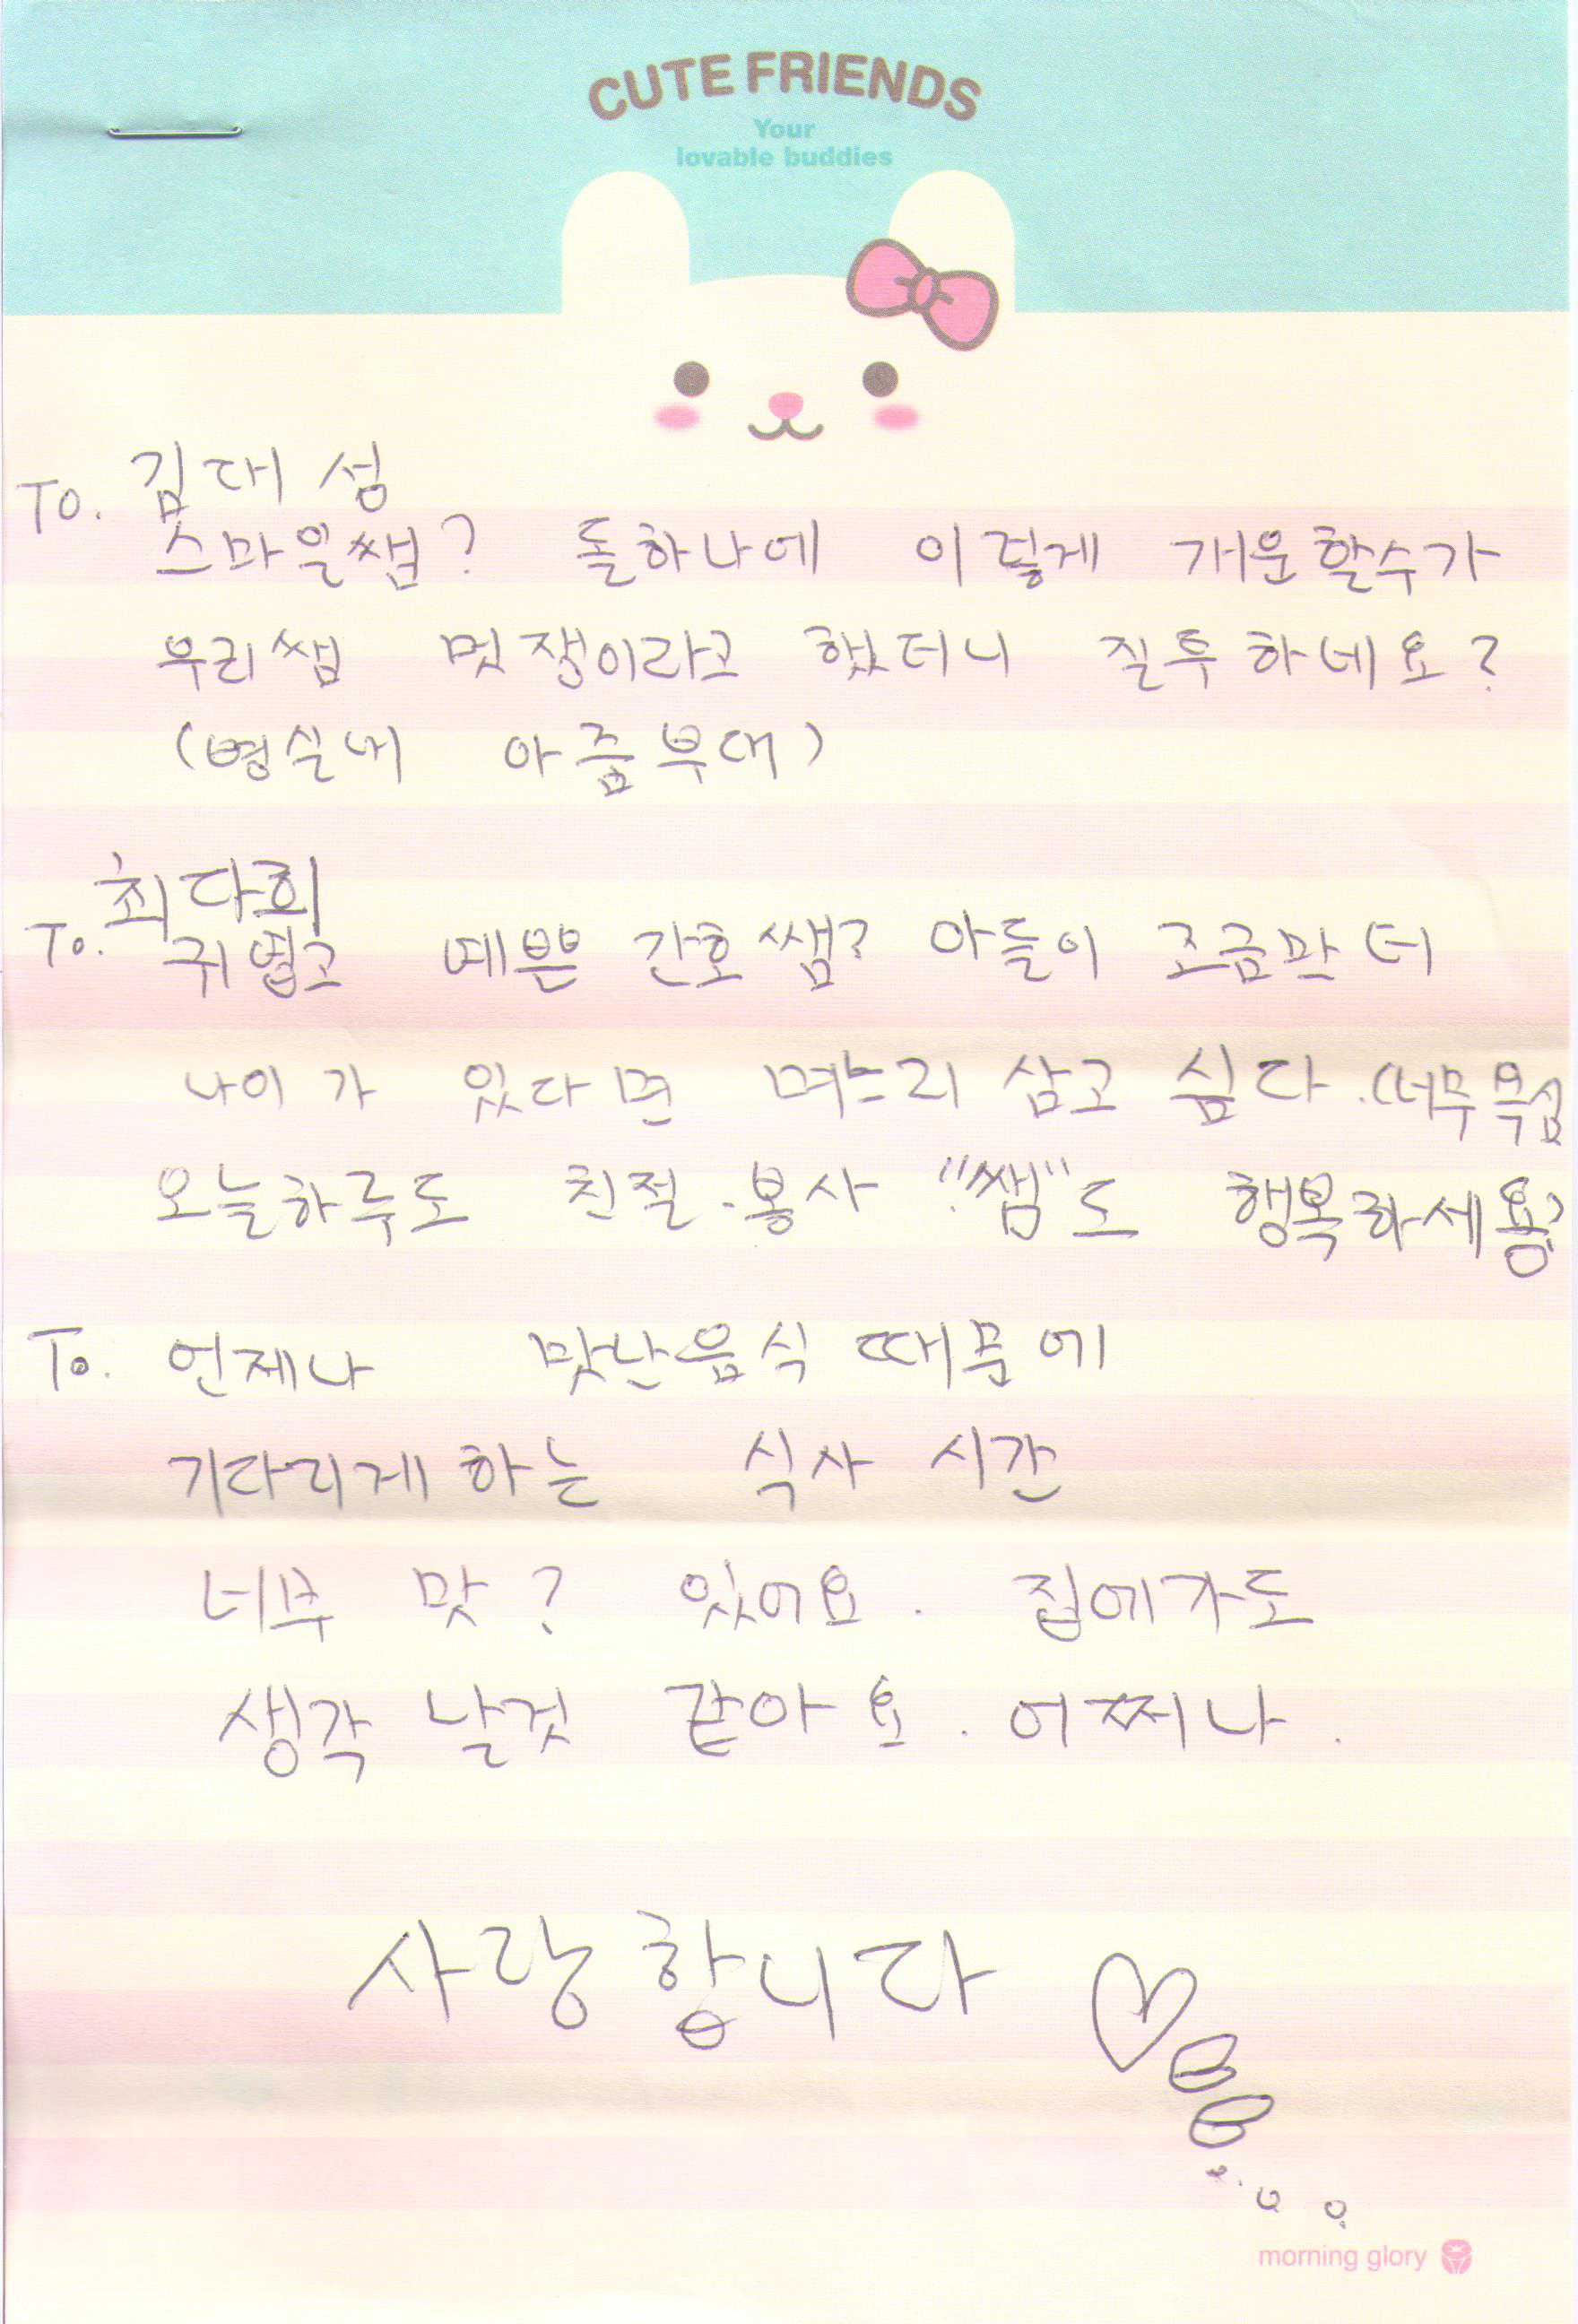 CUTE FRIENDS
Your
lovable buddies
To. 김대성
스마일쌤? 돌하나에 이렇게 개운할수가
우리쌤 멋쟁이라고 했더니 질투하네요?
(병실내 아줌부대)
To. 최다희
귀엽고 예쁜 간호쌤? 아들이 조금만 더
나이가 있다면 며느리 삼고 싶다. (너무욕심
오늘하루도 친절.봉사 "쌤"도 행복하세용?
To. 언제나 맛난음식 때문에
기다리게 하는 식사 시간
너무 맛? 있어요. 집에가도
생각 날것 같아요. 어쩌나.
사랑합니다
morning glory